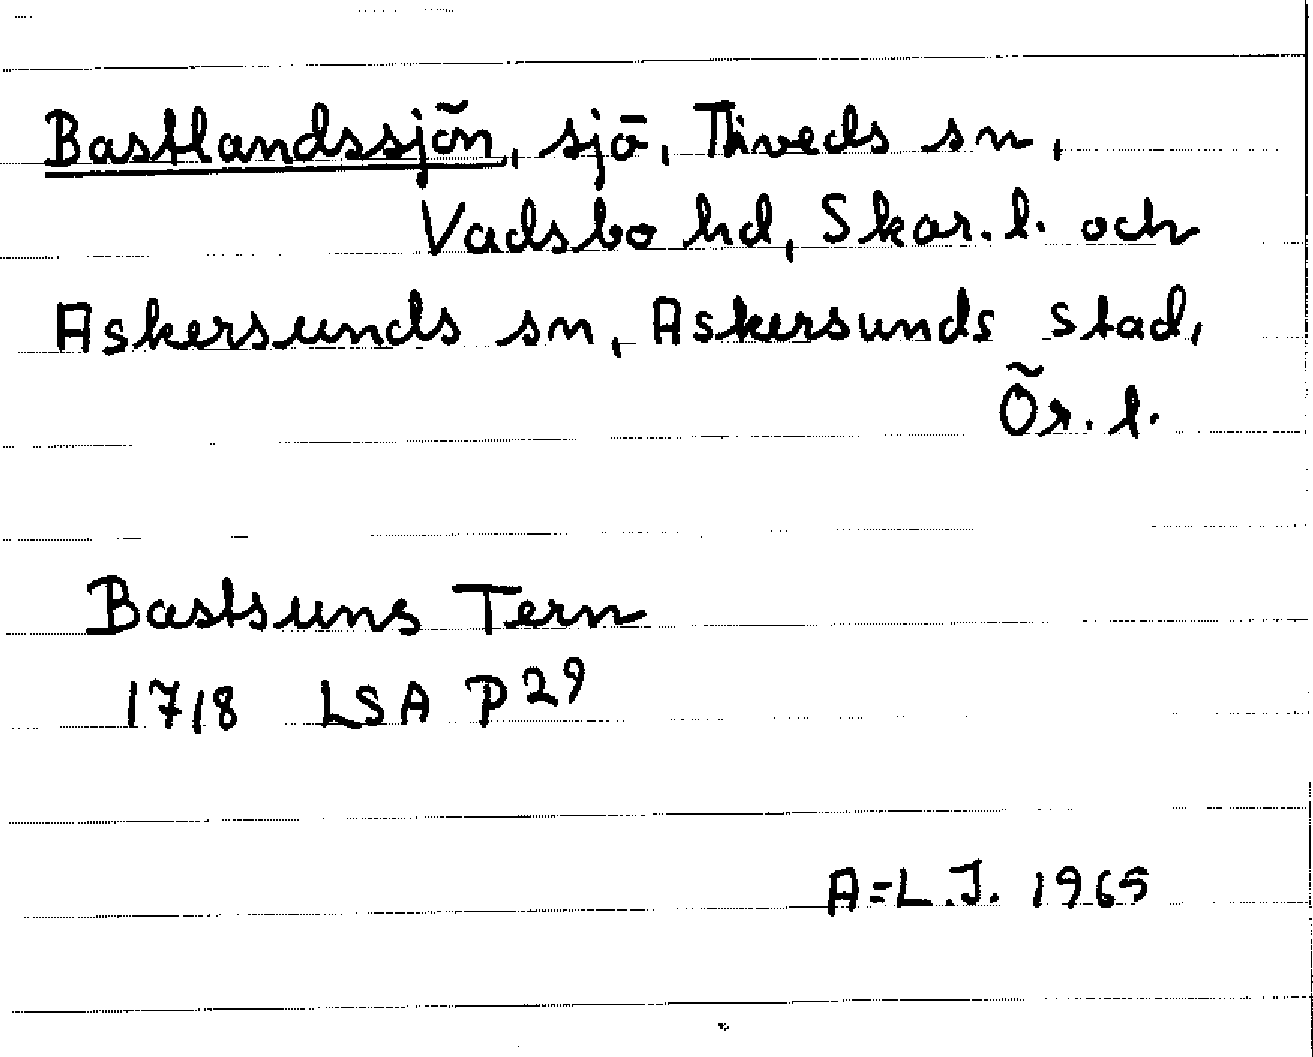 Bastlandssjön, sjö, Tiveds sn,
Vadsbo hd, Skar. l. och
Askersunds sn, Askersunds stad,
Ör. l.
Bastsuns Tern
1718 LSA P 29
A=L.J. 1965